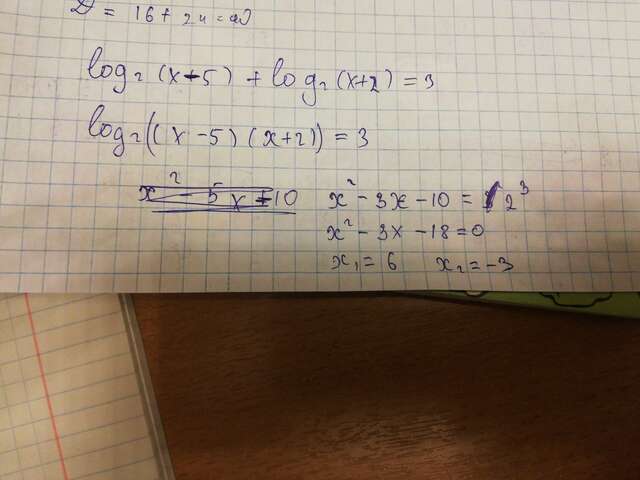 D = 16 + 24 = 40
log₂ (x-5) + log₂ (x+2) = 3
log₂((x-5) (x+2)) = 3
x² - 3x - 10 = 2³
x² - 3x - 18 = 0
x₁ = 6 x₂ = -3